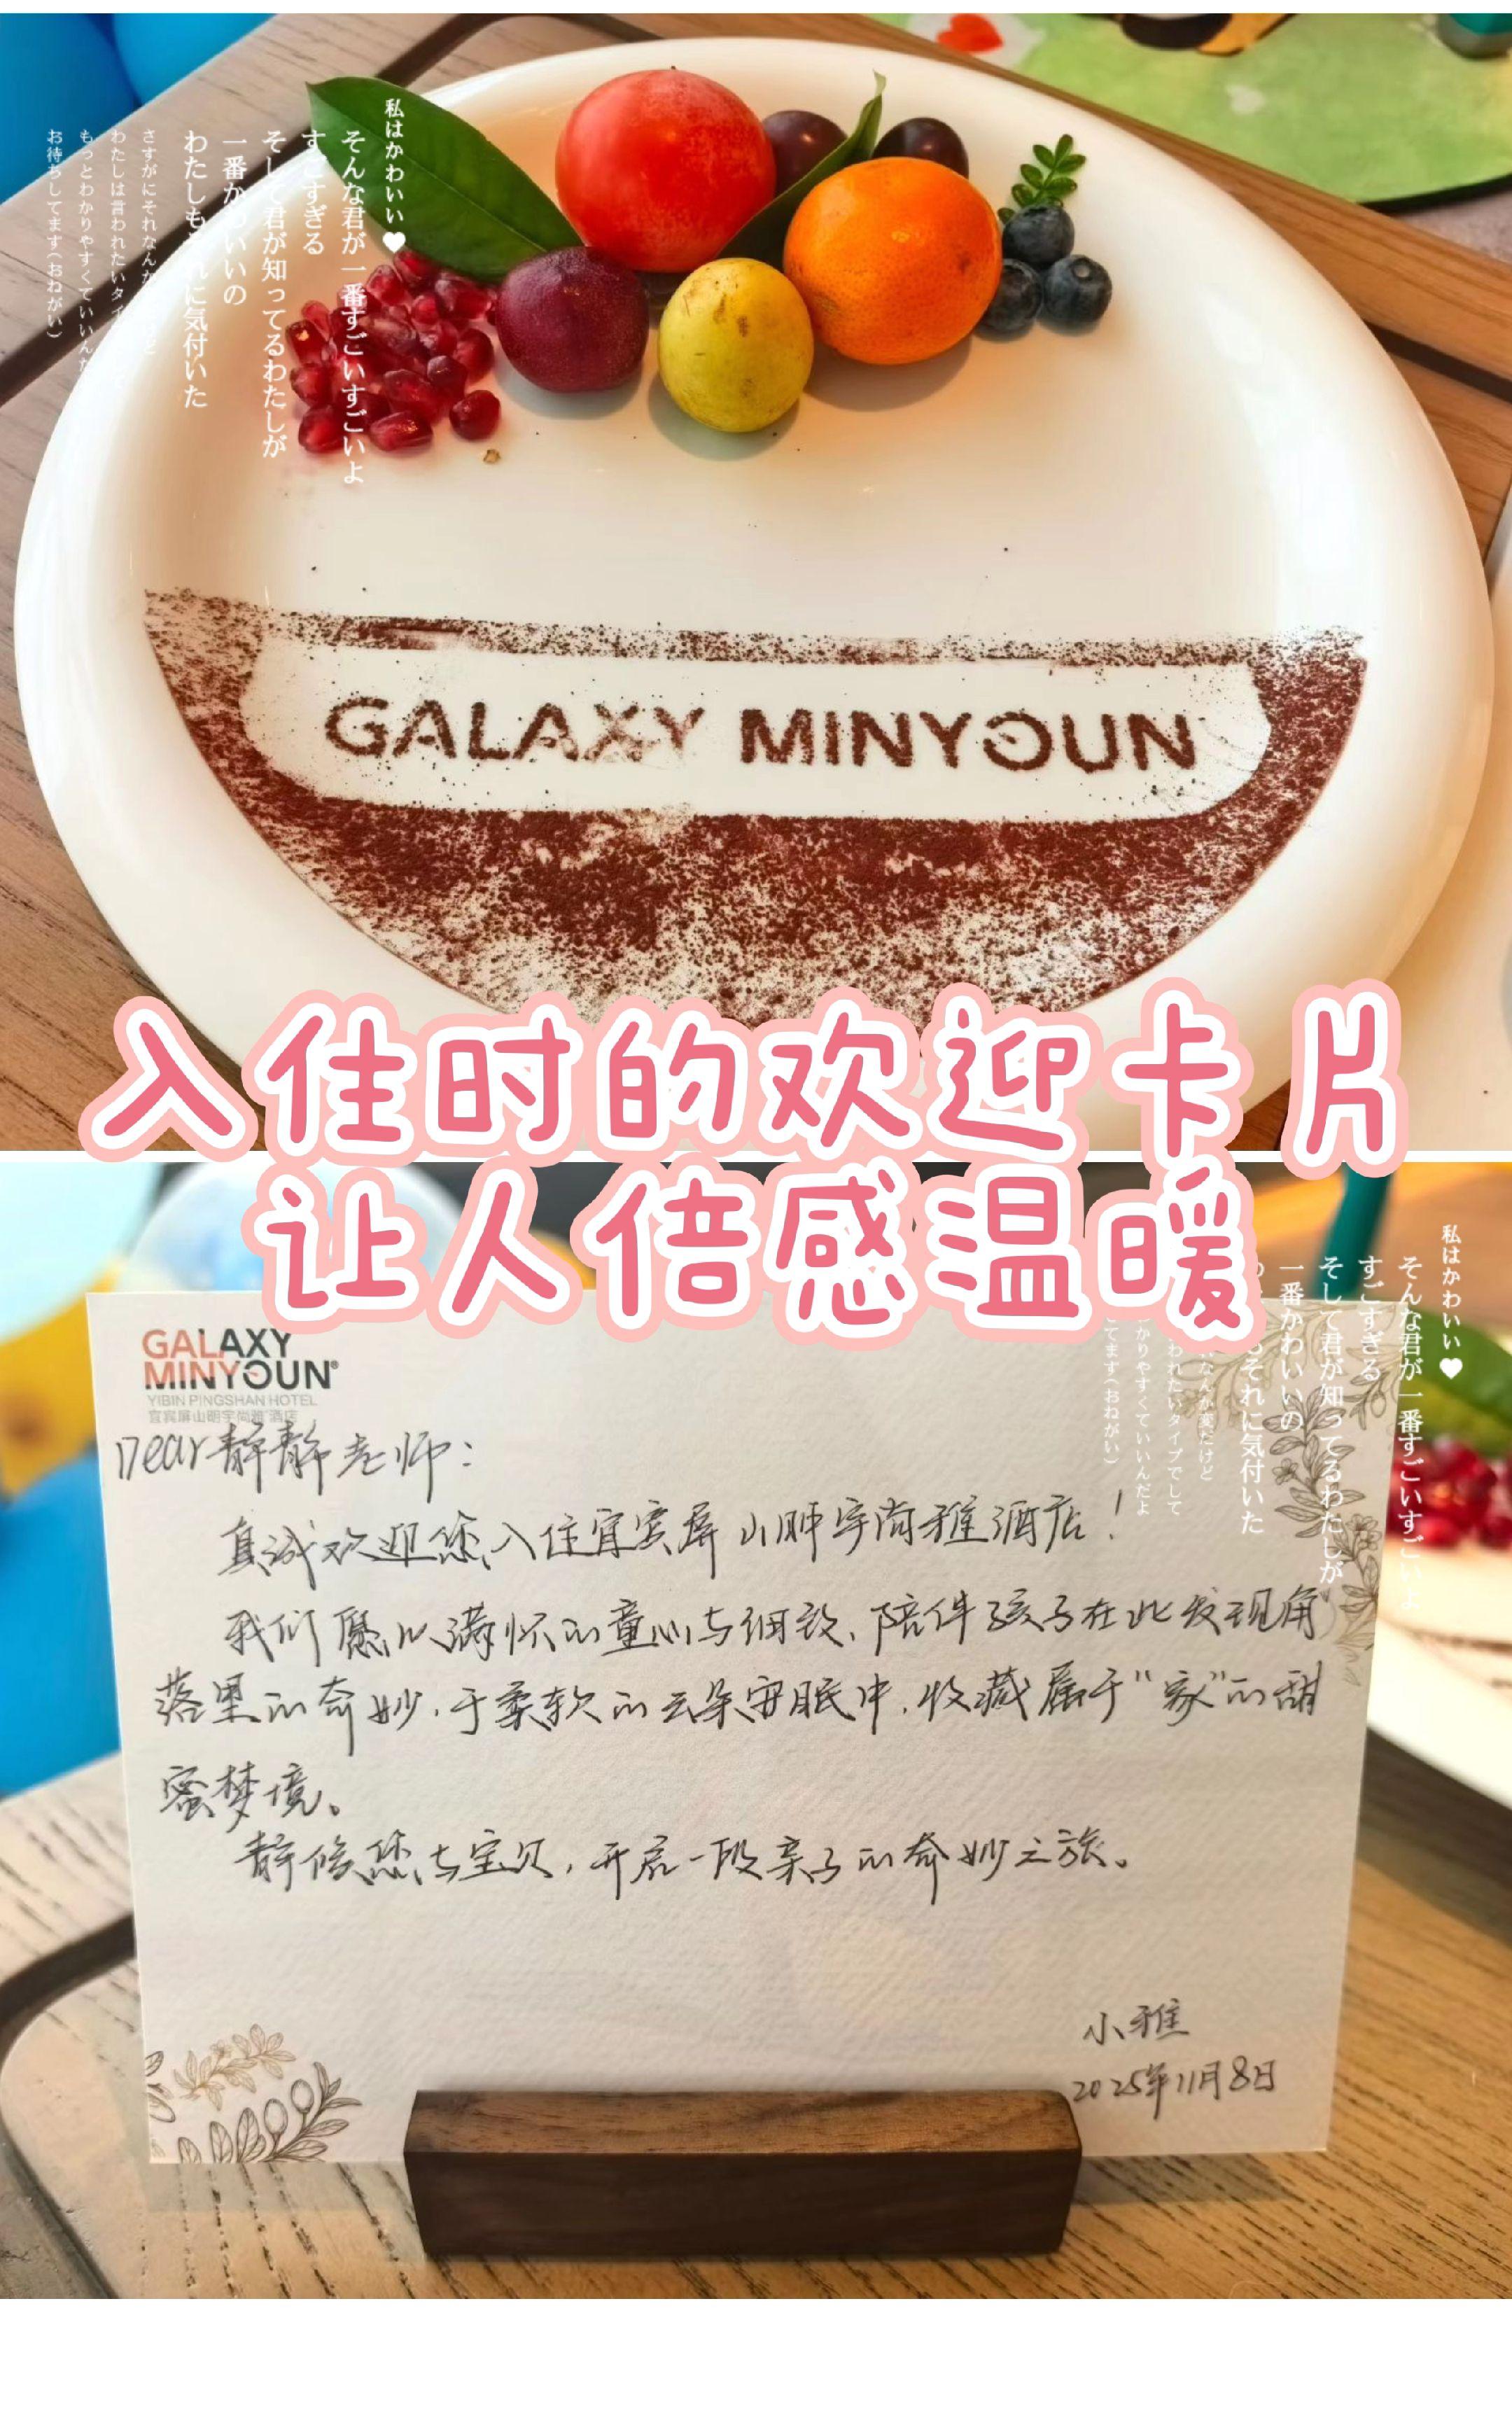 私はかわいい♥
そんな君が一番すごいすごいよ
すごすぎる
そして君が知ってるわたしが
一番かわいいの
わたしもそれに気付いた
さすがにそれなんか
わたしは言われたいタイ
もっとわかりやすくていいんだ
お待ちしてます(おねがい)
GALAXY MINYOUN
入住时的欢迎卡片
让人倍感温暖
私はかわいい♥
そんな君が一番すごいすごいよ
すごすぎる
そして君が知ってるわたしが
一番かわいいの
もそれに気付いた
なんか変だけど
われたいタイプでして
かりやすくていいんだよ
てます(おねがい)
GALAXY
MINYOUN®
YIBIN PINGSHAN HOTEL
宜宾屏山明宇尚雅酒店
Dear静静老师:
真诚欢迎您入住宜宾屏山明宇尚雅酒店!
我们愿以满怀的童心与细致、陪伴孩子在此发现角
落里的奇妙,于柔软的云朵安眠中,收藏属于“家”的甜
蜜梦境。
静候您与宝贝,开启一段亲子的奇妙之旅。
小雅
2025年11月8日